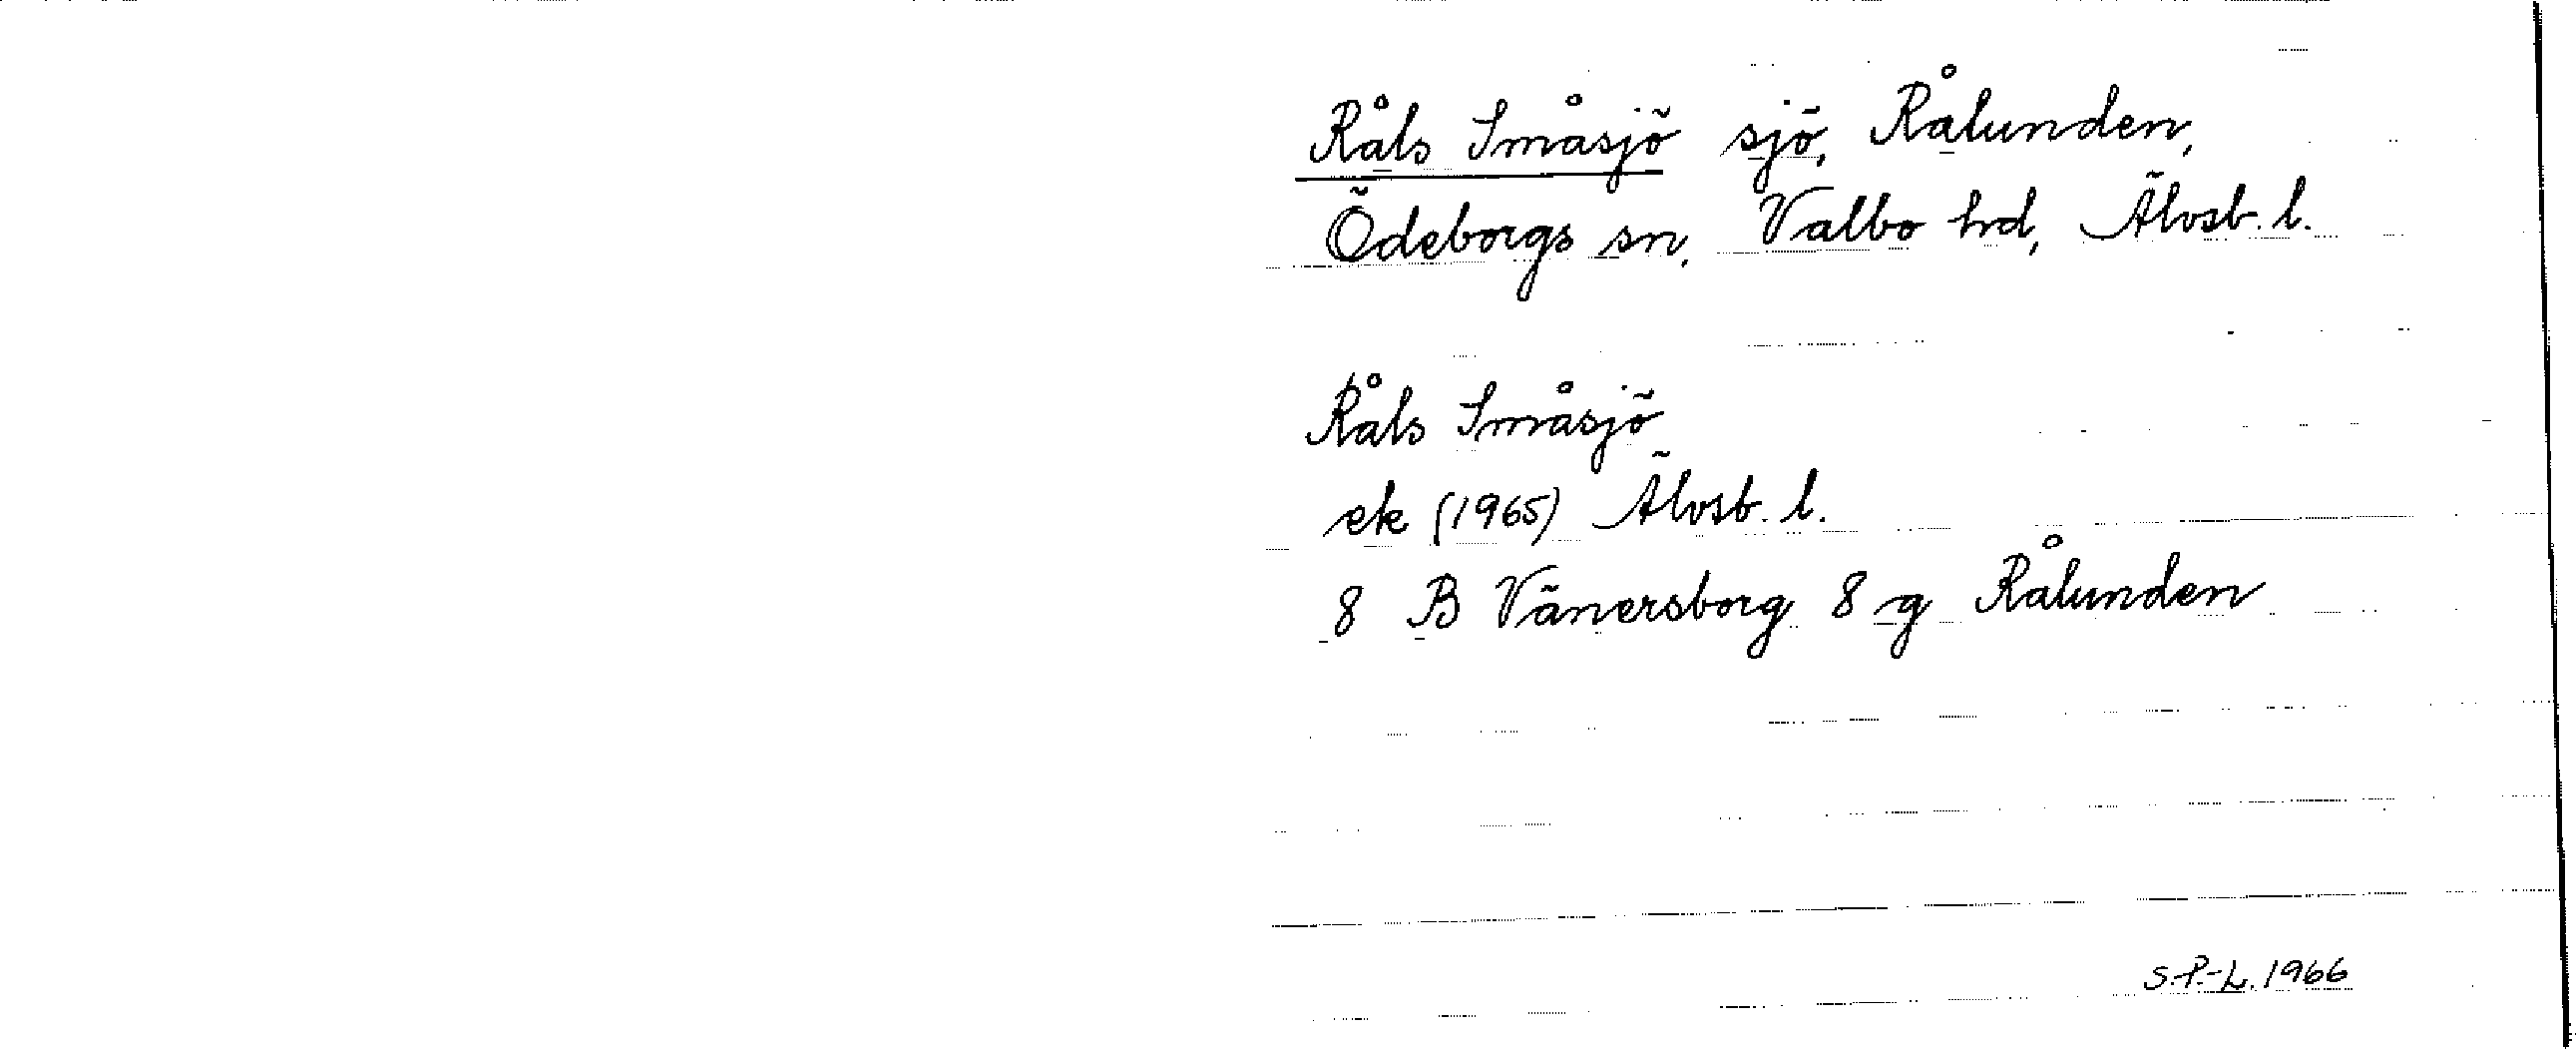 Råls Småsjö sjö, Rålunden,
Ödeborgs sn, Valbo hd, Älvsb. l.
Råls Småsjö
ek (1965) Älvsb. l.
8 B Vänersborg 8 g Rålunden
S.P.-L. 1966